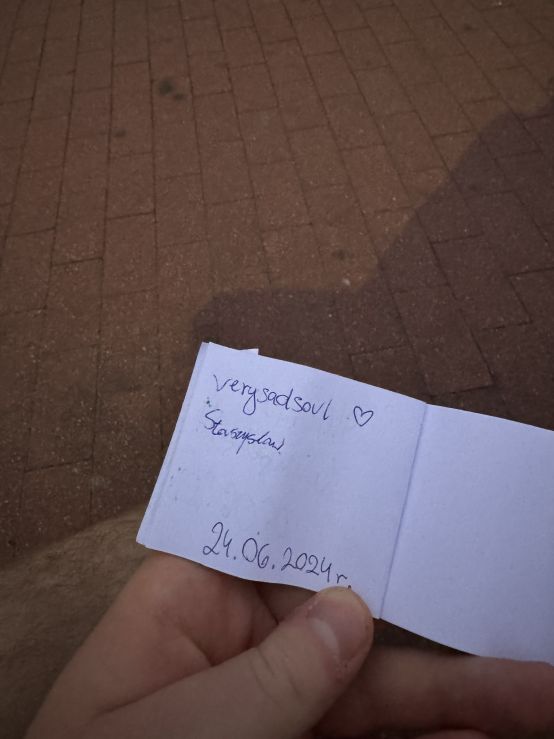 verysadsoul ♡
24.06.2024r.